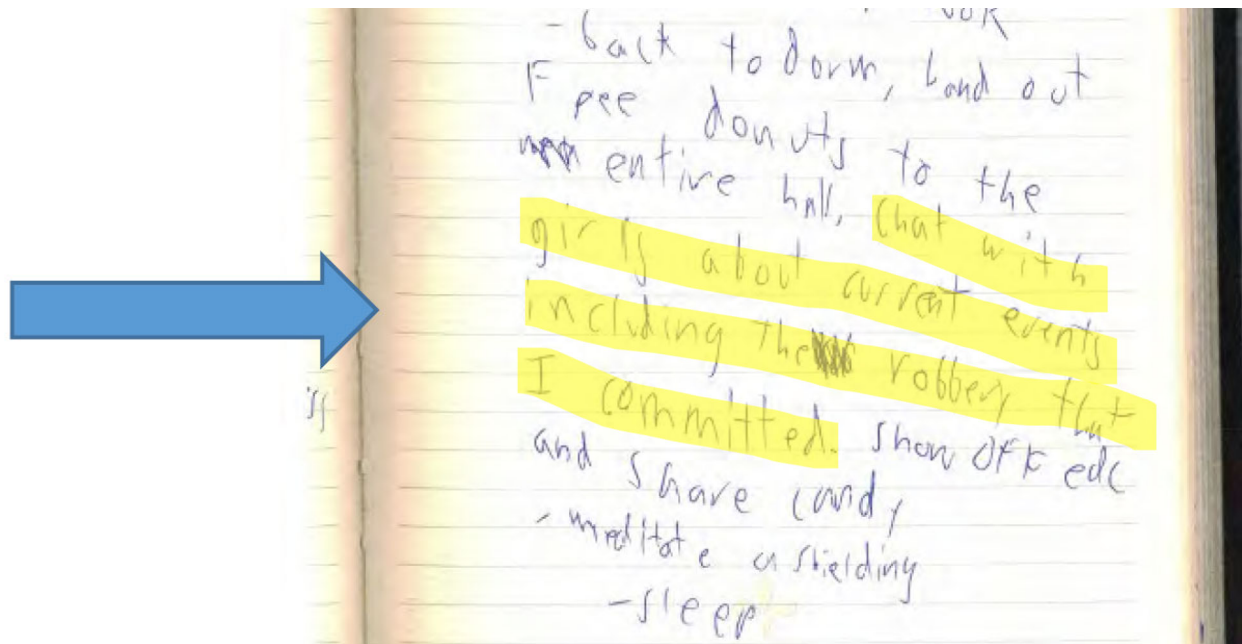 - back to dorm, hand out
Free donuts to the
entire hall, chat with
girls about current events
including the robbery that
I committed. show off edc
and share candy
- meditate on shielding
- sleep